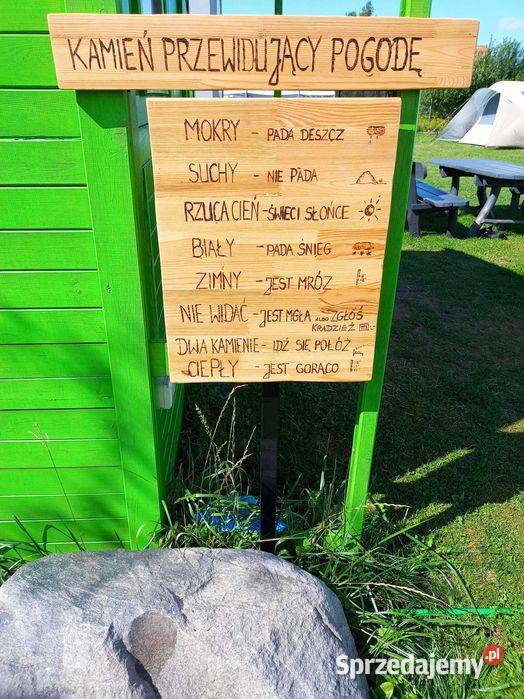 KAMIEŃ PRZEWIDUJĄCY POGODĘ
MOKRY - PADA DESZCZ
SUCHY - NIE PADA
RZUCA CIEŃ - ŚWIECI SŁOŃCE
BIAŁY - PADA ŚNIEG
ZIMNY - JEST MRÓZ
NIE WIDAĆ - JEST MGŁA ALBO ZGŁOŚ
KRADZIEŻ
DWA KAMIENIE - IDŹ SIĘ POŁÓŻ
CIEPŁY - JEST GORĄCO
Sprzedajemy.pl